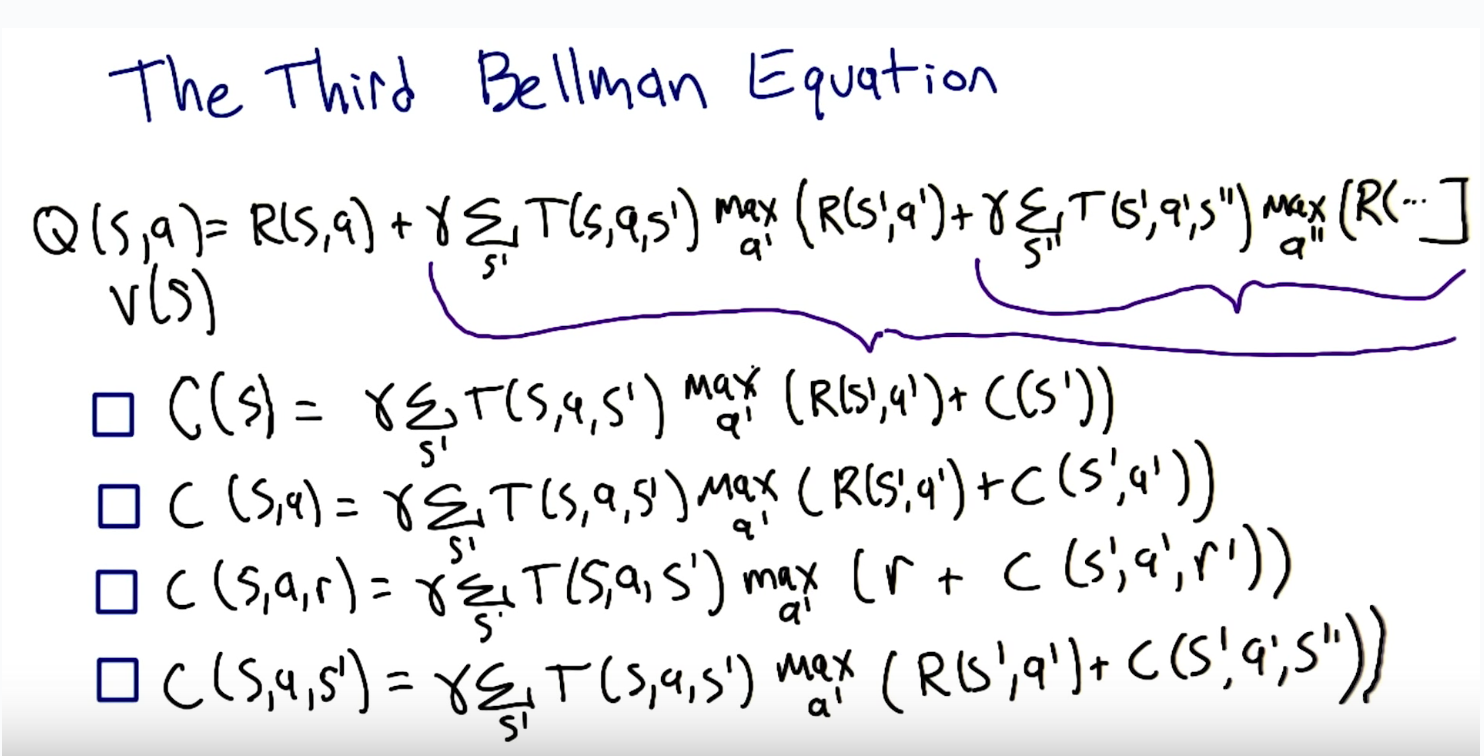 The Third Bellman Equation
Q(s,a)= R(s,a) + γ Σ T(s,a,s') max (R(s',a')+ γ Σ T(s',a',s") max (R(···]
s' a' s" a"
V(s)
□ C(s) = γ Σ T(s,a,s') max (R(s',a')+ C(s'))
s' a'
□ C (s,a) = γ Σ T(s,a,s') max (R(s',a')+C (s',a'))
s' a'
□ C (s,a,r) = γ Σ T(s,a,s') max (r + C (s',a',r'))
s' a'
□ C(s,a,s') = γ Σ T(s,a,s') max (R(s',a')+ C(s',a',s"))
s' a'